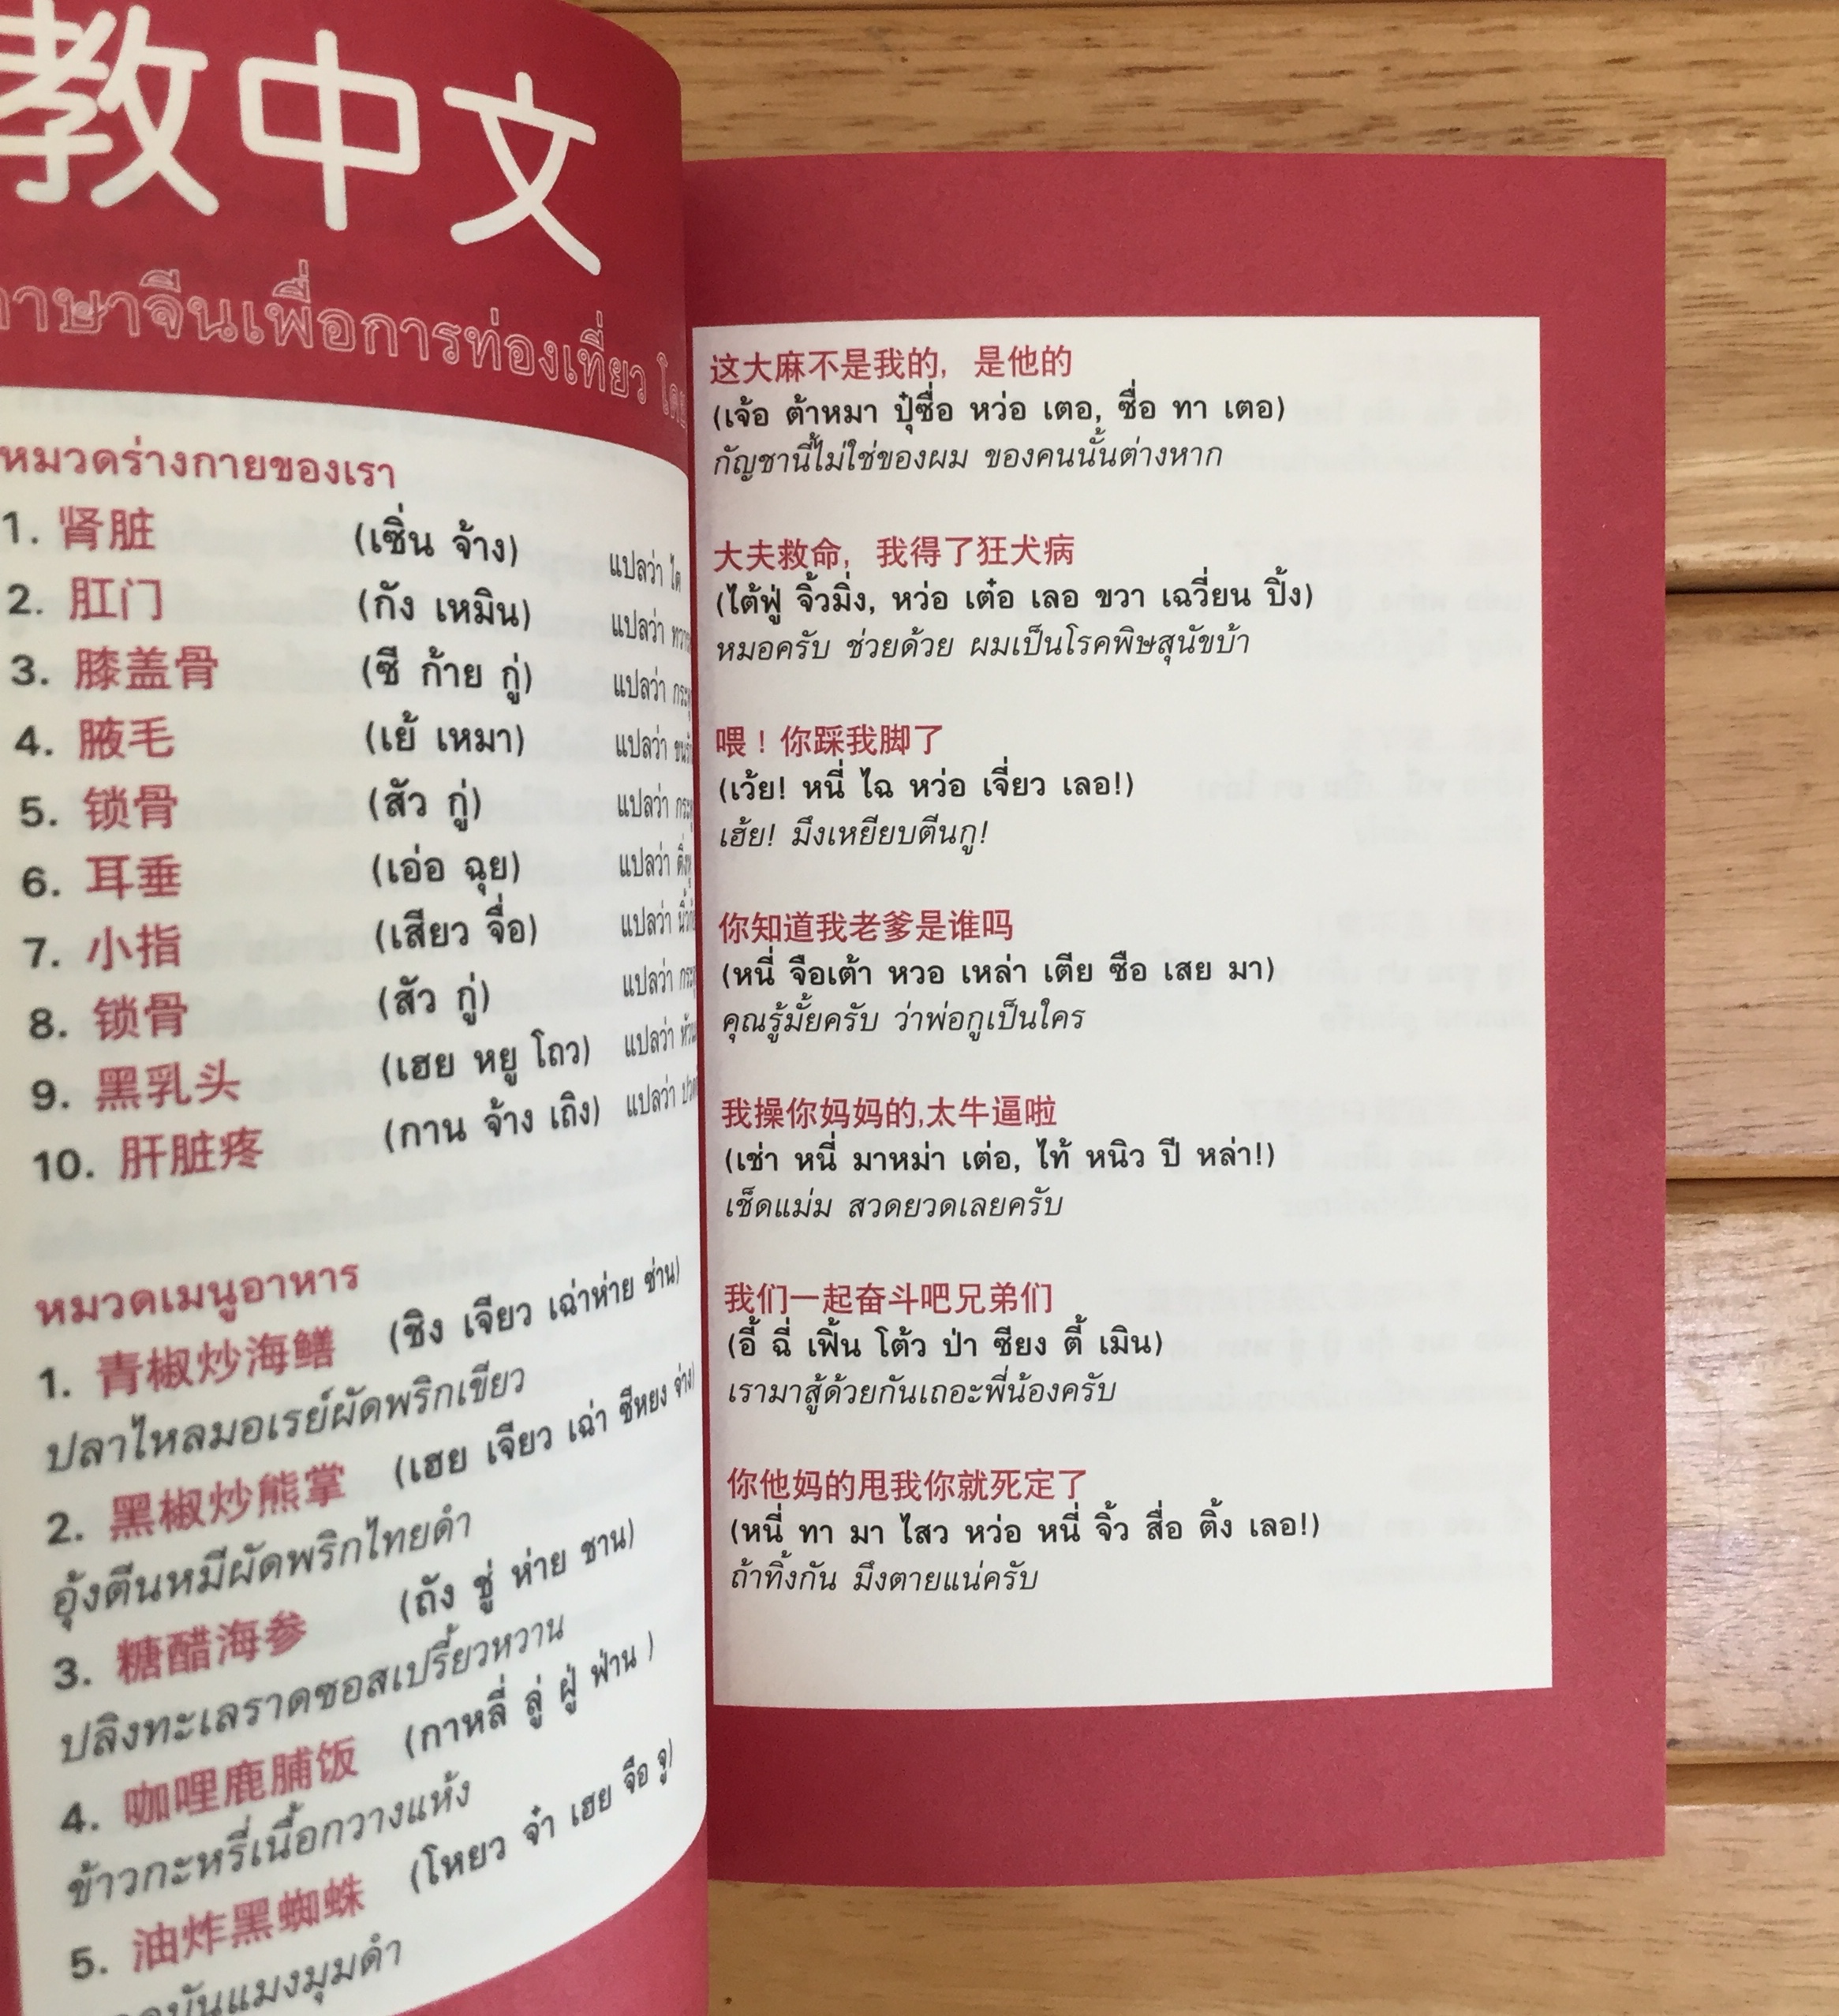 教中文
ภาษาจีนเพื่อการท่องเที่ยว
หมวดร่างกายของเรา
1. 肾脏 (เซิ่น จ้าง) แปลว่า ไต
2. 肛门 (กัง เหมิน) แปลว่า
3. 膝盖骨 (ซี ก้าย กู่) แปลว่า
4. 腋毛 (เย้ เหมา) แปลว่า
5. 锁骨 (สัว กู่) แปลว่า
6. 耳垂 (เอ่อ ฉุย) แปลว่า
7. 小指 (เสียว จื่อ) แปลว่า
8. 锁骨 (สัว กู่) แปลว่า
9. 黑乳头 (เฮย หยู โถว) แปลว่า
10. 肝脏疼 (กาน จ้าง เถิง) แปลว่า
หมวดเมนูอาหาร
1. 青椒炒海鳝 (ชิง เจียว เฉ่าห่าย ซ่าน)
ปลาไหลมอเรย์ผัดพริกเขียว
2. 黑椒炒熊掌 (เฮย เจียว เฉ่า ซีหยง จ่าง)
อุ้งตีนหมีผัดพริกไทยดำ
3. 糖醋海参 (ถัง ชู่ ห่าย ชาน)
ปลิงทะเลราดซอสเปรี้ยวหวาน
4. 咖哩鹿脯饭 (กาหลี่ ลู่ ฝู่ ฟ่าน )
ข้าวกะหรี่เนื้อกวางแห้ง
5. 油炸黑蜘蛛 (โหยว จ๋า เฮย จือ จู)
这大麻不是我的, 是他的
(เจ้อ ต้าหมา ปุ๋ซื่อ หว่อ เตอ, ซื่อ ทา เตอ)
กัญชานี้ไม่ใช่ของผม ของคนนั้นต่างหาก
大夫救命, 我得了狂犬病
(ไต้ฟู่ จิ้วมิ่ง, หว่อ เต๋อ เลอ ขวา เฉวี่ยน ปิ้ง)
หมอครับ ช่วยด้วย ผมเป็นโรคพิษสุนัขบ้า
喂！你踩我脚了
(เว้ย! หนี่ ไฉ หว่อ เจี่ยว เลอ!)
เฮ้ย! มึงเหยียบตีนกู!
你知道我老爹是谁吗
(หนี่ จือเต้า หวอ เหล่า เตีย ซือ เสย มา)
คุณรู้มั้ยครับ ว่าพ่อกูเป็นใคร
我操你妈妈的,太牛逼啦
(เช่า หนี่ มาหม่า เต่อ, ไท้ หนิว ปี หล่า!)
เช็ดแม่ม สวดยวดเลยครับ
我们一起奋斗吧兄弟们
(อี้ ฉี่ เฟิ้น โต้ว ป่า ซียง ตี้ เมิน)
เรามาสู้ด้วยกันเถอะพี่น้องครับ
你他妈的甩我你就死定了
(หนี่ ทา มา ไสว หว่อ หนี่ จิ้ว สื่อ ติ้ง เลอ!)
ถ้าทิ้งกัน มึงตายแน่ครับ